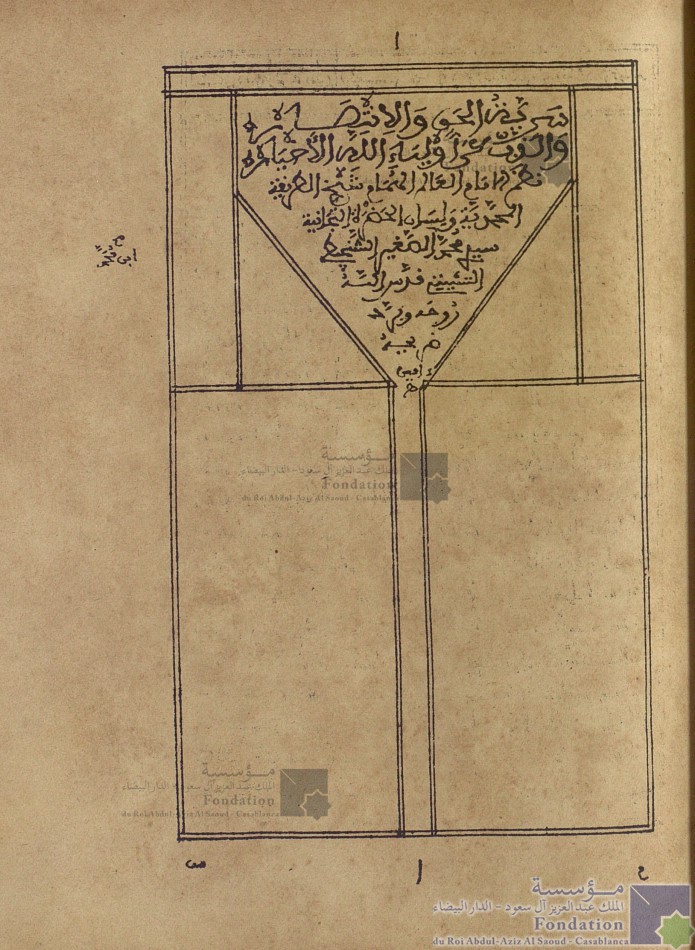 ا
سرية الحق والانتصار
والذب عن أولياء الله الأخيار
نظم الإمام العالم الهمام شيخ الطريقة
المحمدية ولسان الحضرة التجانية
سيدي محمد الصغير الشنجيطي
التشيتي قدس الله
روحه
ءامين
ه
ا
ح
مؤسسة
الملك عبد العزيز آل سعود - الدار البيضاء
Fondation
du Roi Abdul-Aziz Al Saoud - Casablanca
مؤسسة
الملك عبد العزيز آل سعود - الدار البيضاء
Fondation
du Roi Abdul-Aziz Al Saoud - Casablanca
مؤسسة
الملك عبد العزيز آل سعود - الدار البيضاء
Fondation
du Roi Abdul-Aziz Al Saoud - Casablanca